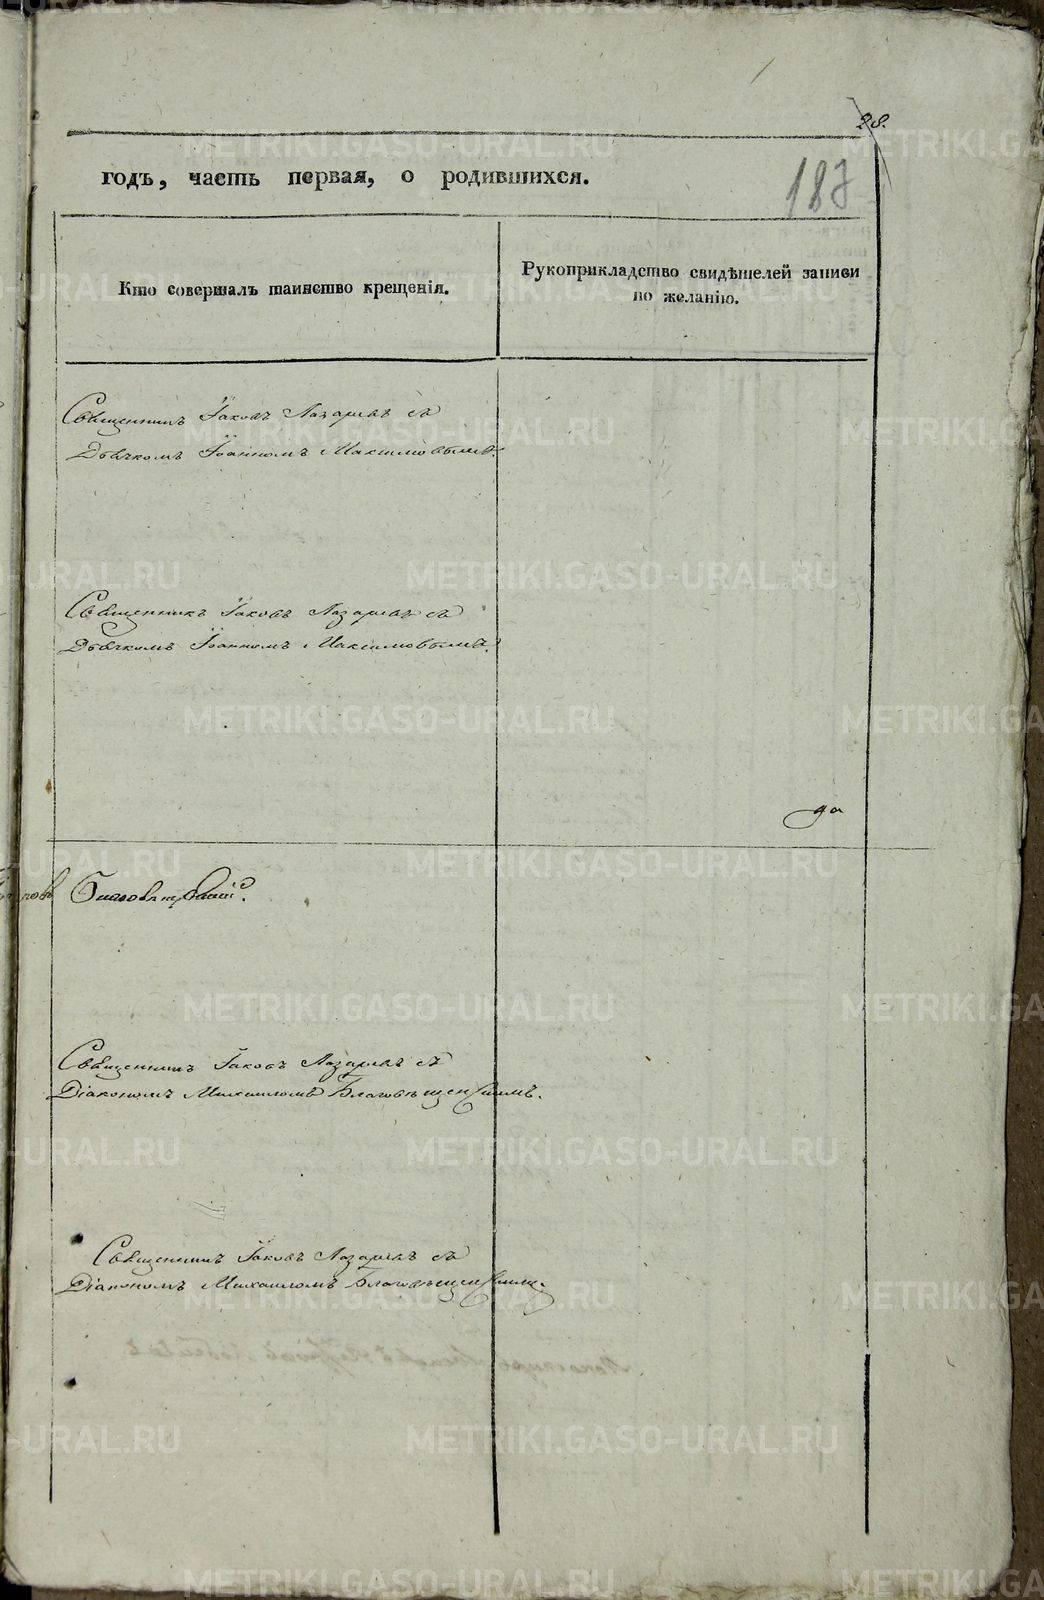 28.
187
годъ, часть первая, о родившихся.
Кто совершалъ таинство крещенія.
Рукоприкладство свидѣтелей записи
по желанію.
Священникъ Іаковъ Лазаревъ съ
Дьячкомъ Іоанномъ Максимовымъ.
Священникъ Іаковъ Лазаревъ съ
Дьячкомъ Іоанномъ Максимовымъ.
да
Священникъ Іаковъ Лазаревъ съ
Діакономъ Михаиломъ Благовѣщенскимъ.
Священникъ Іаковъ Лазаревъ съ
Діакономъ Михаиломъ Благовѣщенскимъ.
METRIKI.GASO-URAL.RU